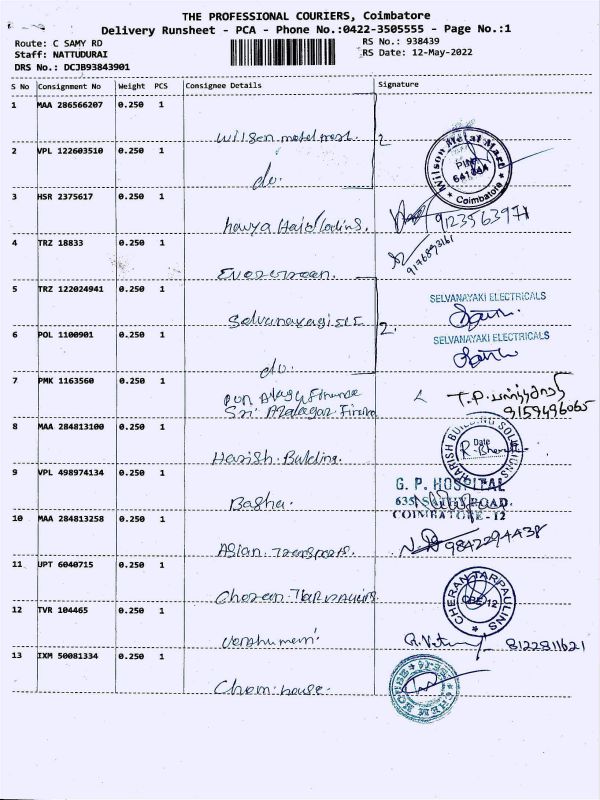 THE PROFESSIONAL COURIERS, Coimbatore
Delivery Runsheet - PCA - Phone No.:0422-3505555 - Page No.:1
Route: C SAMY RD
RS No.: 938439
Staff: NATTUDURAI
RS Date: 12-May-2022
DRS No.: DCJB93843901
S No Consignment No Weight PCS Consignee Details Signature
1 MAA 286566207 0.250 1
Wilson metal mart. 2
Wilson Metal Mart
PIN
Coimbatore
2 VPL 122603510 0.250 1
do.
3 HSR 2375617 0.250 1
9123563971
4 TRZ 18833 0.250 1
Evergreen.
9176893161
5 TRZ 122024941 0.250 1
SELVANAYAKI ELECTRICALS
2.
6 POL 1100901 0.250 1
SELVANAYAKI ELECTRICALS
do.
7 PMK 1163560 0.250 1
T.P.
9159496065
8 MAA 284813100 0.250 1
Harish Building.
HARISH BUILDING SOLUTIONS
Date
9 VPL 498974134 0.250 1
Basha.
G. P. HOSPITAL
635, ROAD.
COIMBATORE-12
10 MAA 284813258 0.250 1
Asian Transports.
9842294438
11 UPT 6040715 0.250 1
Cheran Tarpaulins.
CHERAN TARPAULINS
CBE-12
12 TVR 104465 0.250 1
8122811621
13 IXM 50081334 0.250 1
Chem house.